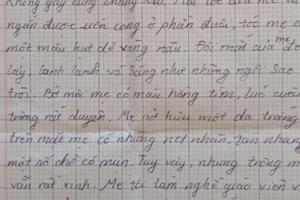 ngắn được uốn cong ở phần đuôi, tóc mẹ c
một màu hạt dẻ vàng nâu. Đôi mắt của mẹ đe
láy, lanh lanh và sáng như những ngôi sao
trời. Bờ môi mẹ có màu hồng tím, lúc cười
trông rất duyên. Mẹ sở hữu một da trắng
trên mặt mẹ có những nét nhăn, tàn nhang
một số chỗ có mụn. Tuy vậy, nhưng trông m
vẫn rất xinh. Mẹ tôi làm nghề giáo viên v